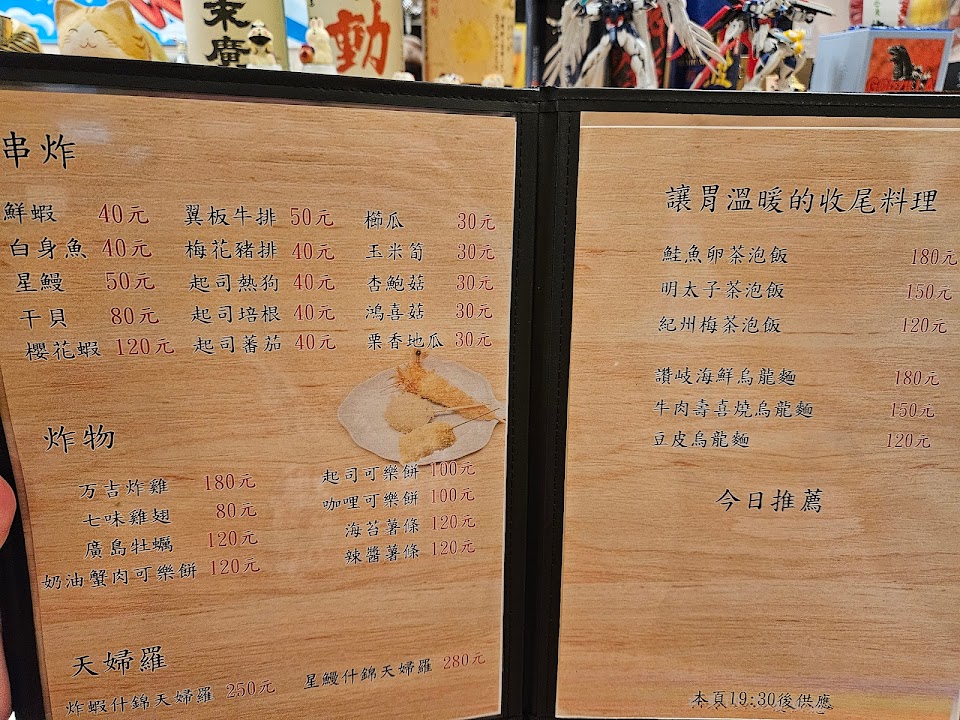 末廣
動
串炸
鮮蝦 40元
白身魚 40元
星鰻 50元
干貝 80元
櫻花蝦 120元
翼板牛排 50元
梅花豬排 40元
起司熱狗 40元
起司培根 40元
起司蕃茄 40元
櫛瓜 30元
玉米筍 30元
杏鮑菇 30元
鴻喜菇 30元
栗香地瓜 30元
炸物
万吉炸雞 180元
七味雞翅 80元
廣島牡蠣 120元
奶油蟹肉可樂餅 120元
起司可樂餅 100元
咖哩可樂餅 100元
海苔薯條 120元
辣醬薯條 120元
天婦羅
炸蝦什錦天婦羅 250元
星鰻什錦天婦羅 280元
讓胃溫暖的收尾料理
鮭魚卵茶泡飯 180元
明太子茶泡飯 150元
紀州梅茶泡飯 120元
讚岐海鮮烏龍麵 180元
牛肉壽喜燒烏龍麵 150元
豆皮烏龍麵 120元
今日推薦
本頁19:30後供應